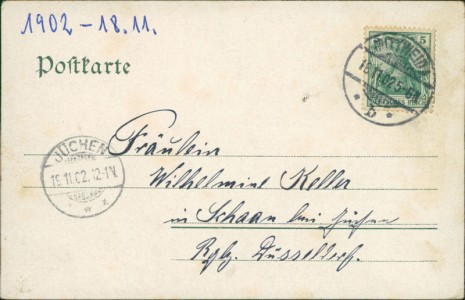 1902 - 18.11.
Postkarte
5
MITTWEIDA
18 11 02 5-6N
* b *
JÜCHEN
19.11.02.12-1N.
Fräulein
Wilhelmine Keller
in Schaan bei Jüchen
Rgbz. Düsseldorf.